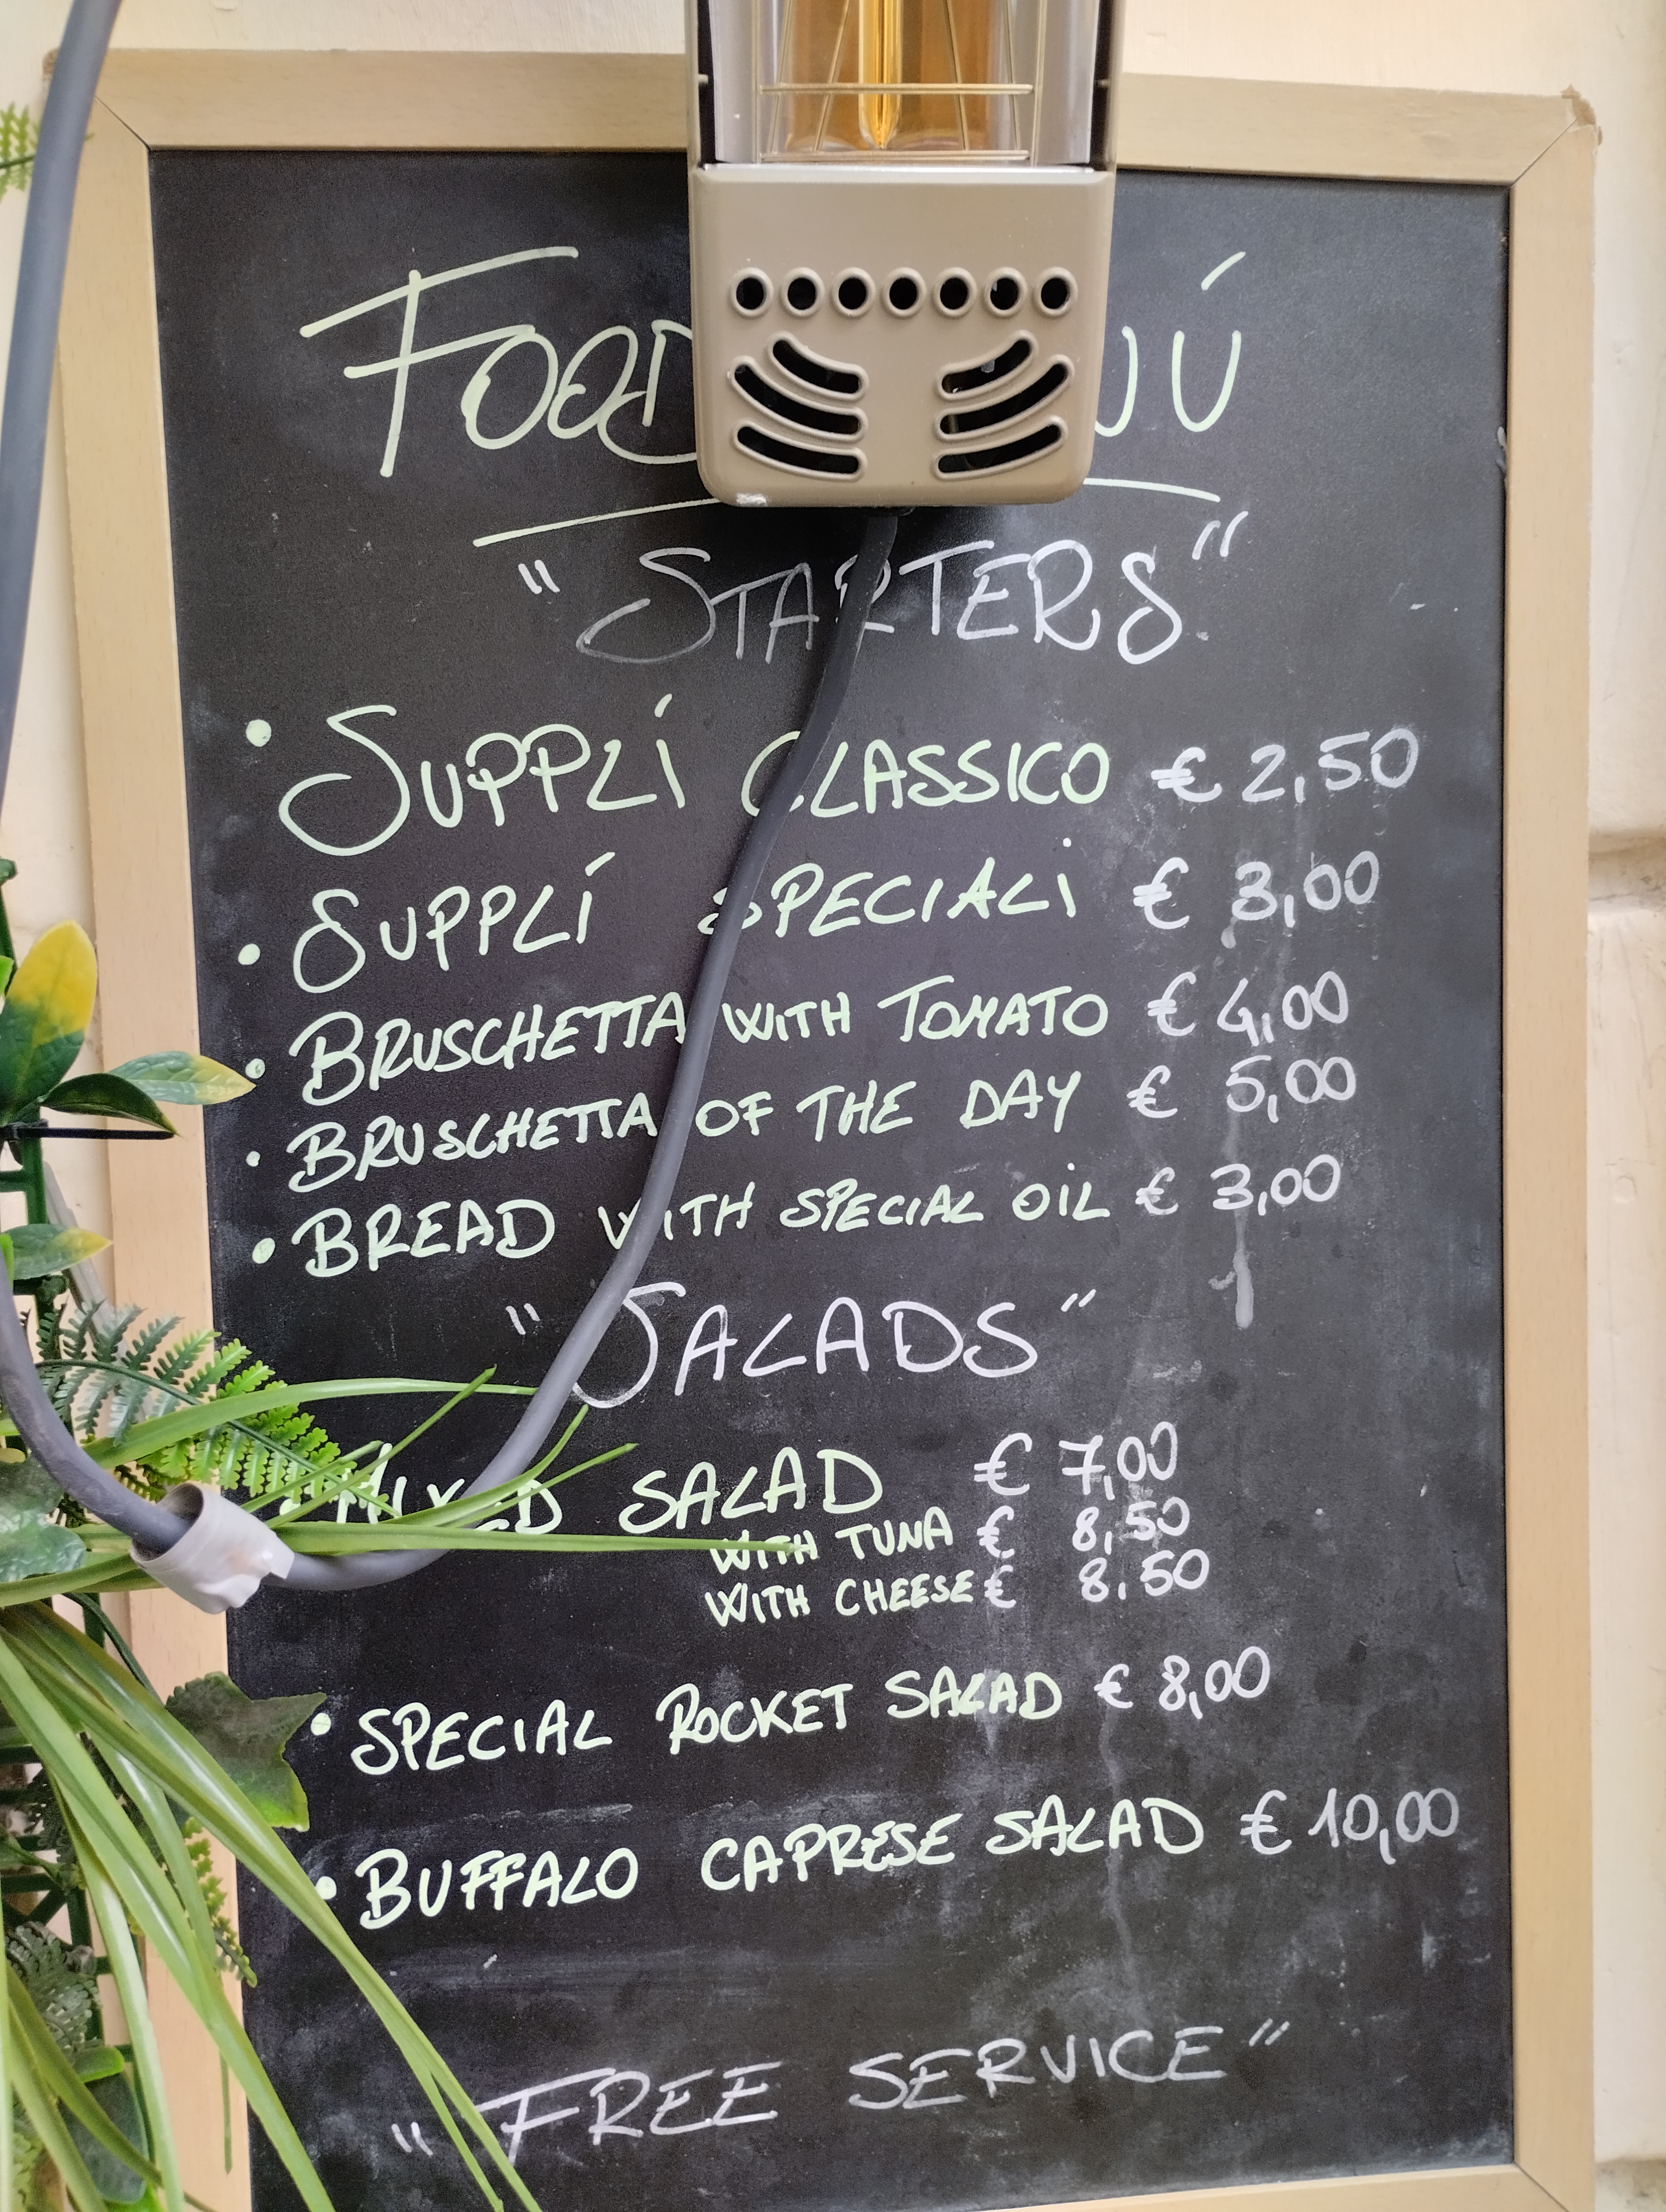 FOOD
"STARTERS"
• SUPPLÍ CLASSICO € 2,50
• SUPPLÍ SPECIALI € 3,00
• BRUSCHETTA WITH TOMATO € 4,00
• BRUSCHETTA OF THE DAY € 5,00
• BREAD WITH SPECIAL OIL € 3,00
"SALADS"
• MIXED SALAD € 7,00
WITH TUNA € 8,50
WITH CHEESE € 8,50
• SPECIAL ROCKET SALAD € 8,00
• BUFFALO CAPRESE SALAD € 10,00
"FREE SERVICE"